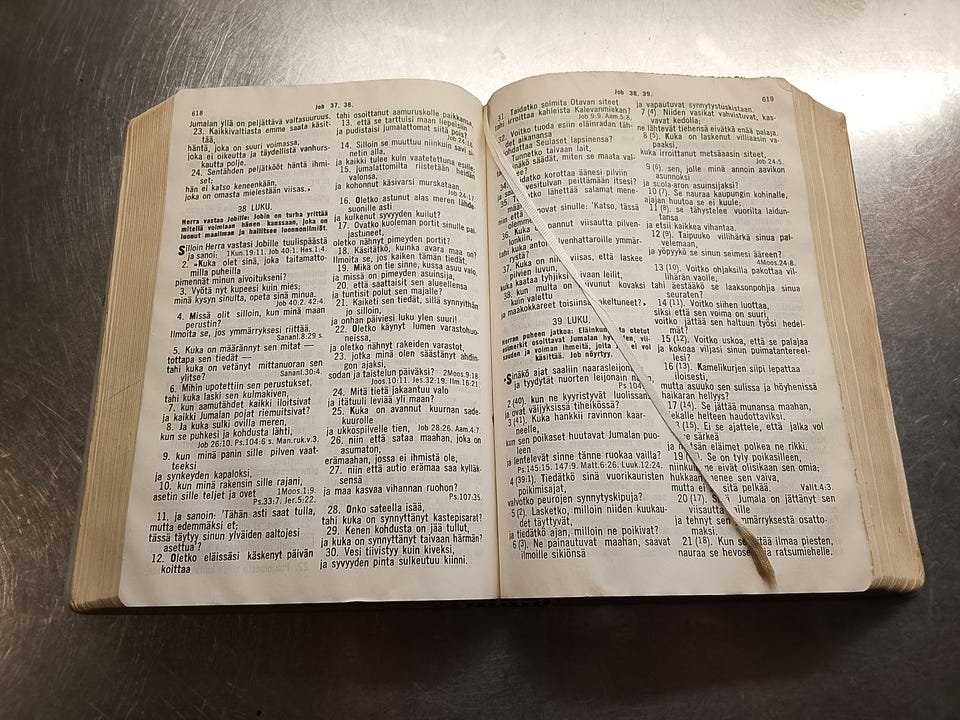 618
Job 37, 38.
jumalan yllä on peljättävä valtasuuruus.
23. Kaikkivaltiasta emme saata käsit-
tää,
häntä, joka on suuri voimassa,
joka ei oikeutta ja täydellistä vanhurs-
kautta polje.
24. Sentähden peljätkööt häntä ihmi-
set;
hän ei katso keneenkään,
joka on omasta mielestään viisas.»
38 LUKU.
Herra vastaa Jobille: Jobin on turha yrittää
mitellä voimiaan hänen kanssaan, joka on
luonut maailman ja hallitsee luonnonilmiöt.
Silloin Herra vastasi Jobille tuulispäästä
ja sanoi: 1Kun.19:11. Job 40:1. Hes.1:4.
2. »Kuka olet sinä, joka taitamatto-
milla puheilla
pimennät minun aivoitukseni?
3. Vyötä nyt kupeesi kuin mies;
minä kysyn sinulta, opeta sinä minua.
Job 40:2. 42:4.
4. Missä olit silloin, kun minä maan
perustin?
Ilmoita se, jos ymmärryksesi riittää.
Sananl.8:29 s.
5. Kuka on määrännyt sen mitat —
tottapa sen tiedät —
tahi kuka on vetänyt mittanuoran sen
ylitse? Sananl.30:4.
6. Mihin upotettiin sen perustukset,
tahi kuka laski sen kulmakiven,
7. kun aamutähdet kaikki iloitsivat
ja kaikki Jumalan pojat riemuitsivat?
8. Ja kuka sulki ovilla meren,
kun se puhkesi ja kohdusta lähti,
Job 26:10. Ps.104:6 s. Man.ruk.v.3.
9. kun minä panin sille pilven vaat-
teeksi
ja synkeyden kapaloksi,
10. kun minä rakensin sille rajani,
asetin sille teljet ja ovet 1Moos.1:9.
Ps.33:7. Jer.5:22.
11. ja sanoin: 'Tähän asti saat tulla,
mutta edemmäksi et;
tässä täytyy sinun ylväiden aaltojesi
asettua'?
12. Oletko eläissäsi käskenyt päivän
koittaa
tahi osoittanut aamuruskolle paikkansa,
13. että se tarttuisi maan liepeisiin
ja pudistaisi jumalattomat siitä pois?
Job 24:14.
14. Silloin se muuttuu niinkuin savi si-
netin alla,
ja kaikki tulee kuin vaatetettuna esiin;
15. jumalattomilta riistetään heidän
valonsa,
ja kohonnut käsivarsi murskataan.
Job 24:17.
16. Oletko astunut alas meren lähde-
suonille asti
ja kulkenut syvyyden kuilut?
17. Ovatko kuoleman portit sinulle pal-
jastuneet,
oletko nähnyt pimeyden portit?
18. Käsitätkö, kuinka avara maa on?
Ilmoita se, jos kaiken tämän tiedät.
19. Mikä on tie sinne, kussa asuu valo,
ja missä on pimeyden asuinsija,
20. että saattaisit sen alueellensa
ja tuntisit polut sen majalle?
21. Kaiketi sen tiedät, sillä synnyithän
jo silloin,
ja onhan päiviesi luku ylen suuri!
22. Oletko käynyt lumen varastohuo-
neissa,
ja oletko nähnyt rakeiden varastot,
23. jotka minä olen säästänyt ahdin-
gon ajaksi,
sodan ja taistelun päiväksi? 2Moos.9:18.
Joos.10:11. Jes.32:19. Ilm.16:21.
24. Mitä tietä jakaantuu valo
ja itätuuli leviää yli maan?
25. Kuka on avannut kuurnan sade-
kuurolle
ja ukkospilvelle tien, Job 28:26. Aam.4:7.
26. niin että sataa maahan, joka on
asumaton,
erämaahan, jossa ei ihmistä ole,
27. niin että autio erämaa saa kylläk-
sensä
ja maa kasvaa vihannan ruohon?
Ps.107:35.
28. Onko sateella isää,
tahi kuka on synnyttänyt kastepisarat?
29. Kenen kohdusta on jää tullut,
ja kuka on synnyttänyt taivaan härmän?
30. Vesi tiivistyy kuin kiveksi,
ja syvyyden pinta sulkeutuu kiinni.
Job 38, 39.
619
31. Taidatko solmita Otavan siteet
tahi irroittaa kahleista Kalevanmiekan?
Job 9:9. Aam.5:8.
32. Voitko tuoda esiin eläinradan täh-
det aikanansa
johdattaa Seulaset lapsinensa?
Tunnetko taivaan lait,
sinäkö säädät, miten se maata val-
see?
34. Taidatko korottaa äänesi pilviin
vesitulvan peittämään itsesi?
35. lähettää salamat mene-
min että
sanovat sinulle: 'Katso, tässä
36. Kuka on pannut viisautta pilven-
lonkiin,
tahi kuka antoi pilvenhattaroille ymmär-
rystä?
37. Kuka on niin viisas, että laskee
pilvien luvun,
kuka kaataa tyhjiksi taivaan leilit,
38. kun multa on sulanut kovaksi
kuin valettu
ja maakokkareet toisiinsa takeltuneet?»
39 LUKU.
Herran puheen jatkoa: Eläinkunnasta otetut
esimerkit osoittavat Jumalan hyvyyden, vii-
sauden ja voiman ihmeitä, joita Job ei voi
käsittää. Job nöyrtyy.
»Sinäkö ajat saaliin naarasleijonalle
ja tyydytät nuorten leijonain nälän,
2 (40). kun ne kyyristyvät luolissansa
ja ovat väijyksissä tiheikössä?
3 (41). Kuka hankkii ravinnon kaar-
neelle,
kun sen poikaset huutavat Jumalan puo-
leen
ja lentelevät sinne tänne ruokaa vailla?
Ps.145:15. 147:9. Matt.6:26. Luuk.12:24.
4 (39:1). Tiedätkö sinä vuorikauristen
poikimisajat,
valvotko peurojen synnytyskipuja?
5 (2). Lasketko, milloin niiden kuukau-
det täyttyvät,
ja tiedätkö ajan, milloin ne poikivat?
6 (3). Ne painautuvat maahan, saavat
ilmoille sikiönsä
ja vapautuvat synnytystuskistaan.
7 (4). Niiden vasikat vahvistuvat, kas-
vavat kedolla;
ne lähtevät tiehensä eivätkä enää palaja.
8 (5). Kuka on laskenut villiaasin va-
paaksi,
kuka irroittanut metsäaasin siteet,
Job 24:5.
9 (6). sen, jolle minä annoin aavikon
asunnoksi
ja suola-aron asuinsijaksi?
10 (7). Se nauraa kaupungin kohinalle,
ajajan huutoa se ei kuule;
11 (8). se tähystelee vuorilta laidun-
tansa
ja etsii kaikkea vihantaa.
12 (9). Taipuuko villihärkä sinua pal-
velemaan,
ja yöpyykö se sinun seimesi ääreen?
4Moos.24:8.
13 (10). Voitko ohjaksilla pakottaa vil-
lihärän vaolle,
tahi äestääkö se laaksopohjia sinua
seuraten?
14 (11). Voitko siihen luottaa,
siksi että sen voima on suuri,
voitko jättää sen haltuun työsi hedel-
mät?
15 (12). Voitko uskoa, että se palajaa
ja kokoaa viljasi sinun puimatantereel-
lesi?
16 (13). Kamelikurjen siipi lepattaa
iloisesti,
mutta asuuko sen sulissa ja höyhenissä
haikaran hellyys?
17 (14). Se jättää munansa maahan,
hiekalle helteen haudottaviksi.
(15). Ei se ajattele, että jalka voi
ne särkeä
ja metsän eläimet polkea ne rikki.
19 (16). Se on tyly poikasilleen,
niinkuin ne eivät olisikaan sen omia;
hukkaan menee sen vaiva,
mutta ei sitä pelkää. Valit.4:3.
20 (17). Sillä Jumala on jättänyt sen
viisautta vaille
ja tehnyt sen ymmärryksestä osatto-
maksi.
21 (18). Kun se kiitää ilmaa piesten,
nauraa se hevoselle ja ratsumiehelle.